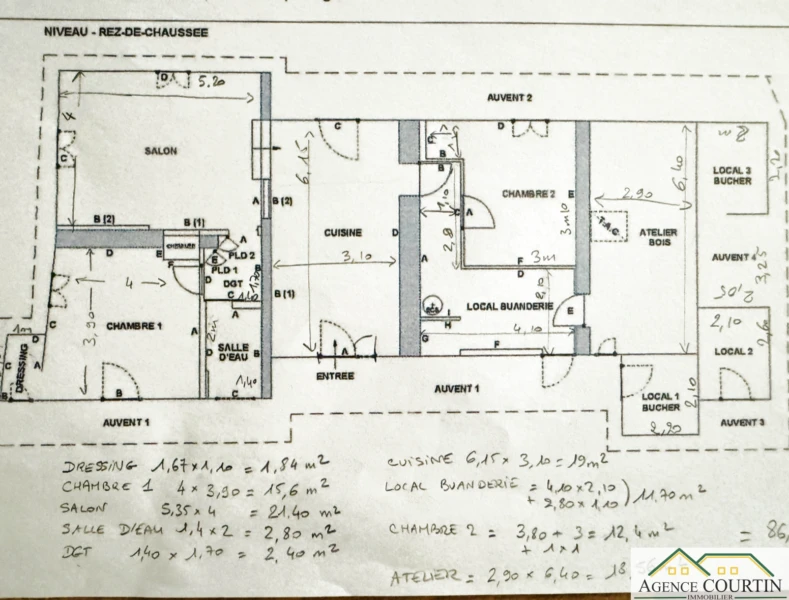 NIVEAU - REZ-DE-CHAUSSEE
D
5,20
AUVENT 2
4
C
SALON
C
6,15
D
B
CHAMBRE 2
E
2,90
6,40
LOCAL 3
BUCHER
2,20
A
B (2)
CUISINE
D
C
A
2,80
1,10
3m10
T.A.C
ATELIER
BOIS
B (2)
B (1)
CHEMINEE
A
PLD 2
E
PLD 1
DGT
3,10
3m
AUVENT 4
3,25
D
E
F
4
D
C
1,40
1,70
B (1)
A
F
D
LOCAL BUANDERIE
2,10
C
CHAMBRE 1
3,90
A
2m
SALLE
D'EAU
B
H
I
4,10
E
2,10
LOCAL 2
2,60
1m
D
C
A
DRESSING
G
F
B
1,40
C
A
ENTREE
AUVENT 1
AUVENT 1
LOCAL 1
BUCHER
2,10
2,20
AUVENT 3
DRESSING 1,67 x 1,10 = 1,84 m²
CHAMBRE 1 4 x 3,90 = 15,6 m²
SALON 5,35 x 4 = 21.40 m²
SALLE D'EAU 1,4 x 2 = 2,80 m²
DGT 1,40 x 1,70 = 2,40 m²
CUISINE 6,15 x 3,10 = 19 m²
LOCAL BUANDERIE = 4,10 x 2,10
+ 2,80 x 1,10 ) 11.70 m²
CHAMBRE 2 = 3,80 + 3 = 12,4 m²
+ 1 x 1
= 86,
ATELIER = 2,90 x 6,40 = 18
AGENCE COURTIN
IMMOBILIER